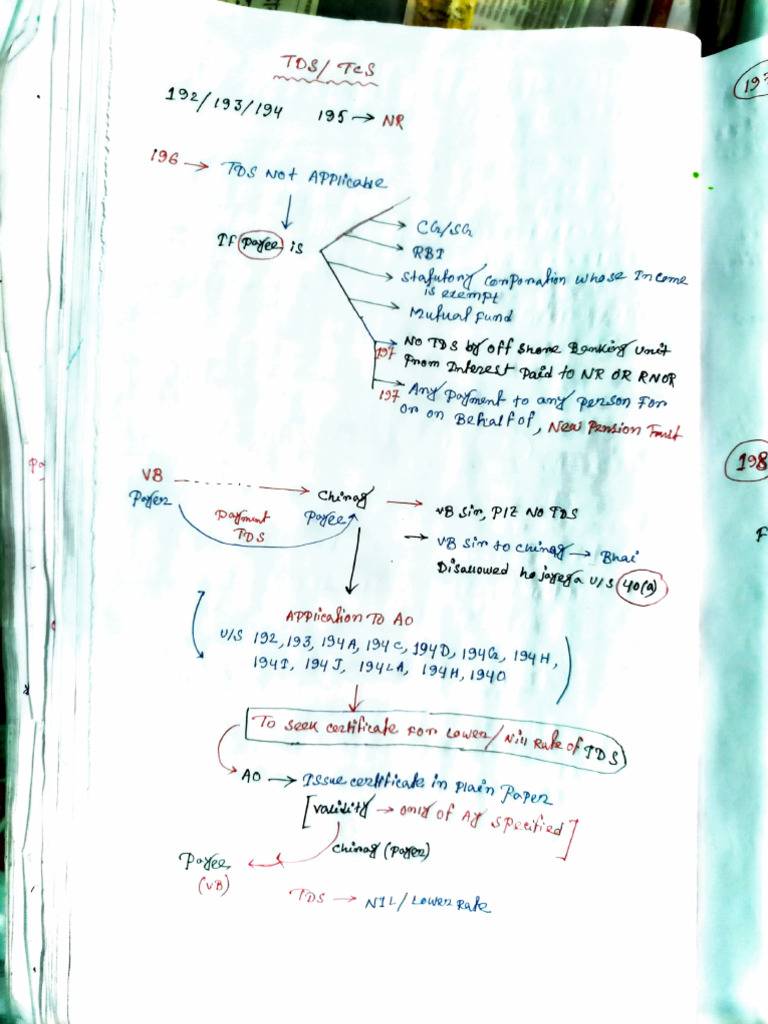 TDS/TCS
192/193/194 195 → NR
196 → TDS Not Applicable
If Payee is
CG/SG
RBI
Statutory Corporation whose Income
is exempt
Mutual Fund
197 No TDS by off Shore Banking Unit
From Interest Paid to NR OR RNOR
197 Any Payment to any person For
Or on Behalf of, New Pension Trust
VB → Chinay → VB Sir, Plz No TDS
Payer Payee
Payment
TDS
→ VB Sir to Chinay → Bhai
Disallowed ho jayega U/S 40(a)
Application To AO
U/S 192, 193, 194A, 194C, 194D, 194G, 194H,
194I, 194J, 194LA, 194H, 194O
To Seek certificate For Lower/Nill Rate of TDS
AO → Issue certificate in Plain Paper
[Validity → only of Ay Specified]
Chinay (Payer)
Payee
(VB)
TDS → NIL/Lower Rate
197
198
F
Pa